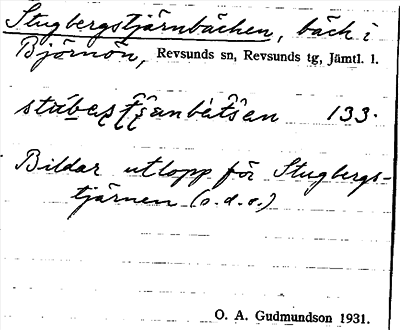 Stugbergstjärnbäcken, bäck i
Björnön, Revsunds sn, Revsunds tg, Jämtl. l.
133.
Bildar utlopp för Stugbergs-
tjärnen (o.d.o.)
O. A. Gudmundson 1931.